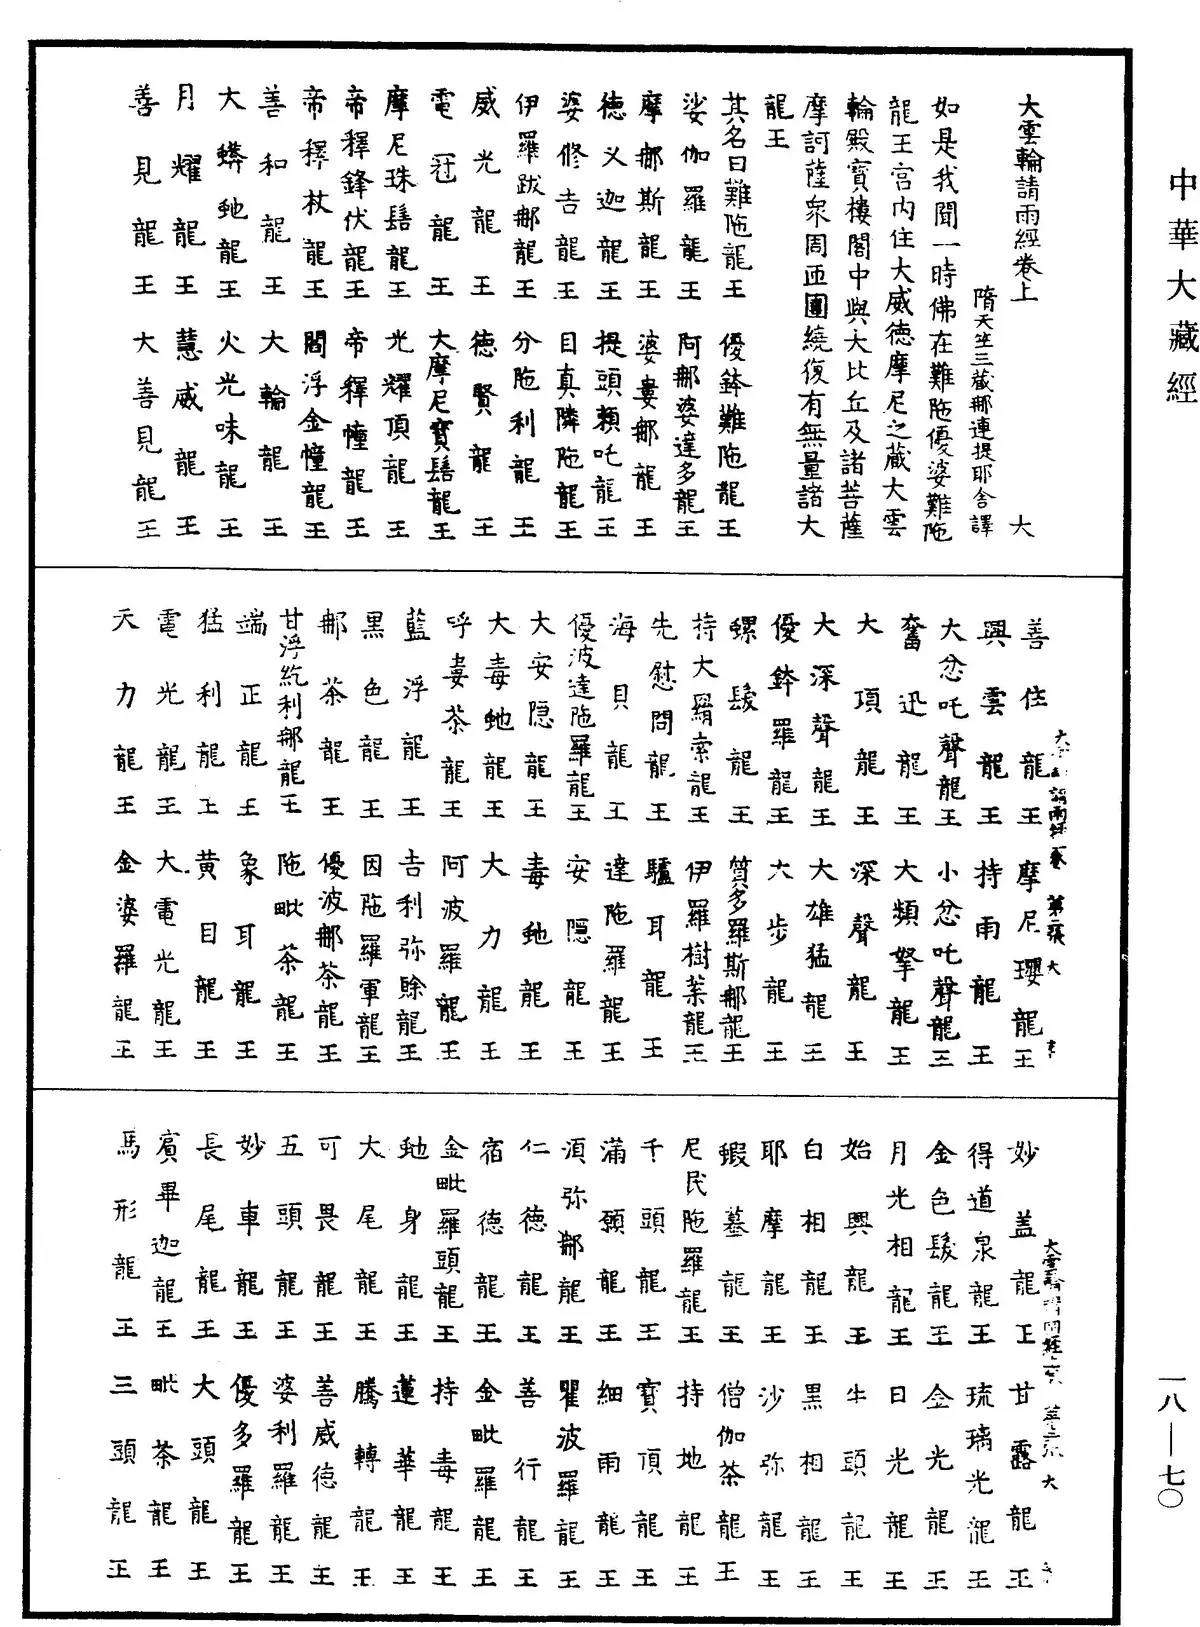 中華大藏經
大雲輪請雨經卷上　大
隋天竺三藏那連提耶舍譯
如是我聞一時佛在難陁優婆難陁
龍王宮內住大威德摩尼之藏大雲
輪殿寶樓閣中與大比丘及諸菩薩
摩訶薩衆周匝圍繞復有無量諸大
龍王
其名曰難陁龍王　優鉢難陁龍王
娑伽羅龍王　阿那婆達多龍王
摩那斯龍王　婆婁那龍王
德叉迦龍王　提頭賴吒龍王
婆修吉龍王　目真隣陁龍王
伊羅跋那龍王　分陁利龍王
威光龍王　德賢龍王
電冠龍王　大摩尼寶髻龍王
摩尼珠髻龍王　光耀頂龍王
帝釋鋒伏龍王　帝釋幢龍王
帝釋杖龍王　閻浮金幢龍王
善和龍王　大輪龍王
大蟒虵龍王　火光味龍王
月耀龍王　慧威龍王
善見龍王　大善見龍王
善住龍王　摩尼瓔龍王
興雲龍王　持雨龍王
大忿吒聲龍王　小忿吒聲龍王
奮迅龍王　大頻拏龍王
大項龍王　深聲龍王
大深聲龍王　大雄猛龍王
優鉢羅龍王　六步龍王
螺髮龍王　質多羅斯那龍王
持大羂索龍王　伊羅樹葉龍王
先慰問龍王　驢耳龍王
海貝龍王　達陁羅龍王
優波達陁羅龍王　安隱龍王
大安隱龍王　毒虵龍王
大毒虵龍王　大力龍王
呼婁茶龍王　阿波羅龍王
藍浮龍王　吉利弥賒龍王
黑色龍王　因陁羅軍龍王
那茶龍王　優波那茶龍王
甘浮紇利那龍王　陁毗茶龍王
端正龍王　象耳龍王
猛利龍王　黃目龍王
電光龍王　大電光龍王
天力龍王　金婆羅龍王
妙盖龍王　甘露龍王
得道泉龍王　琉璃光龍王
金色髮龍王　金光龍王
月光相龍王　日光龍王
始興龍王　牛頭龍王
白相龍王　黑相龍王
耶摩龍王　沙弥龍王
蝦蟇龍王　僧伽茶龍王
尼民陁羅龍王　持地龍王
千頭龍王　寶頂龍王
滿願龍王　細雨龍王
須弥那龍王　瞿波羅龍王
仁德龍王　善行龍王
宿德龍王　金毗羅龍王
金毗羅頭龍王　持毒龍王
虵身龍王　蓮華龍王
大尾龍王　騰轉龍王
可畏龍王　善威德龍王
五頭龍王　婆利羅龍王
妙車龍王　優多羅龍王
長尾龍王　大頭龍王
賓畢迦龍王　毗茶龍王
馬形龍王　三頭龍王
一八—七〇